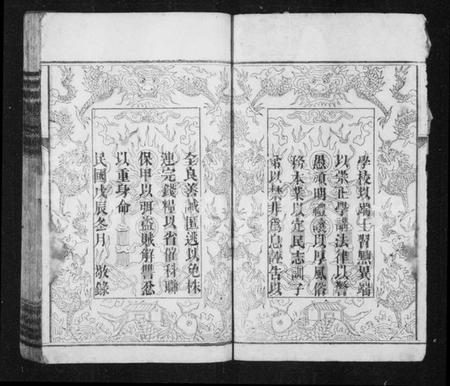 學校以端士習黜異端
以崇正學講法律以警
愚頑明禮讓以厚風俗
務本業以定民志訓子
弟以禁非為息誣告以
全良善誡匿逃以免株
連完錢糧以省催科聯
保甲以弭盜賊解讐忿
以重身命
民國戊辰冬月 敬錄